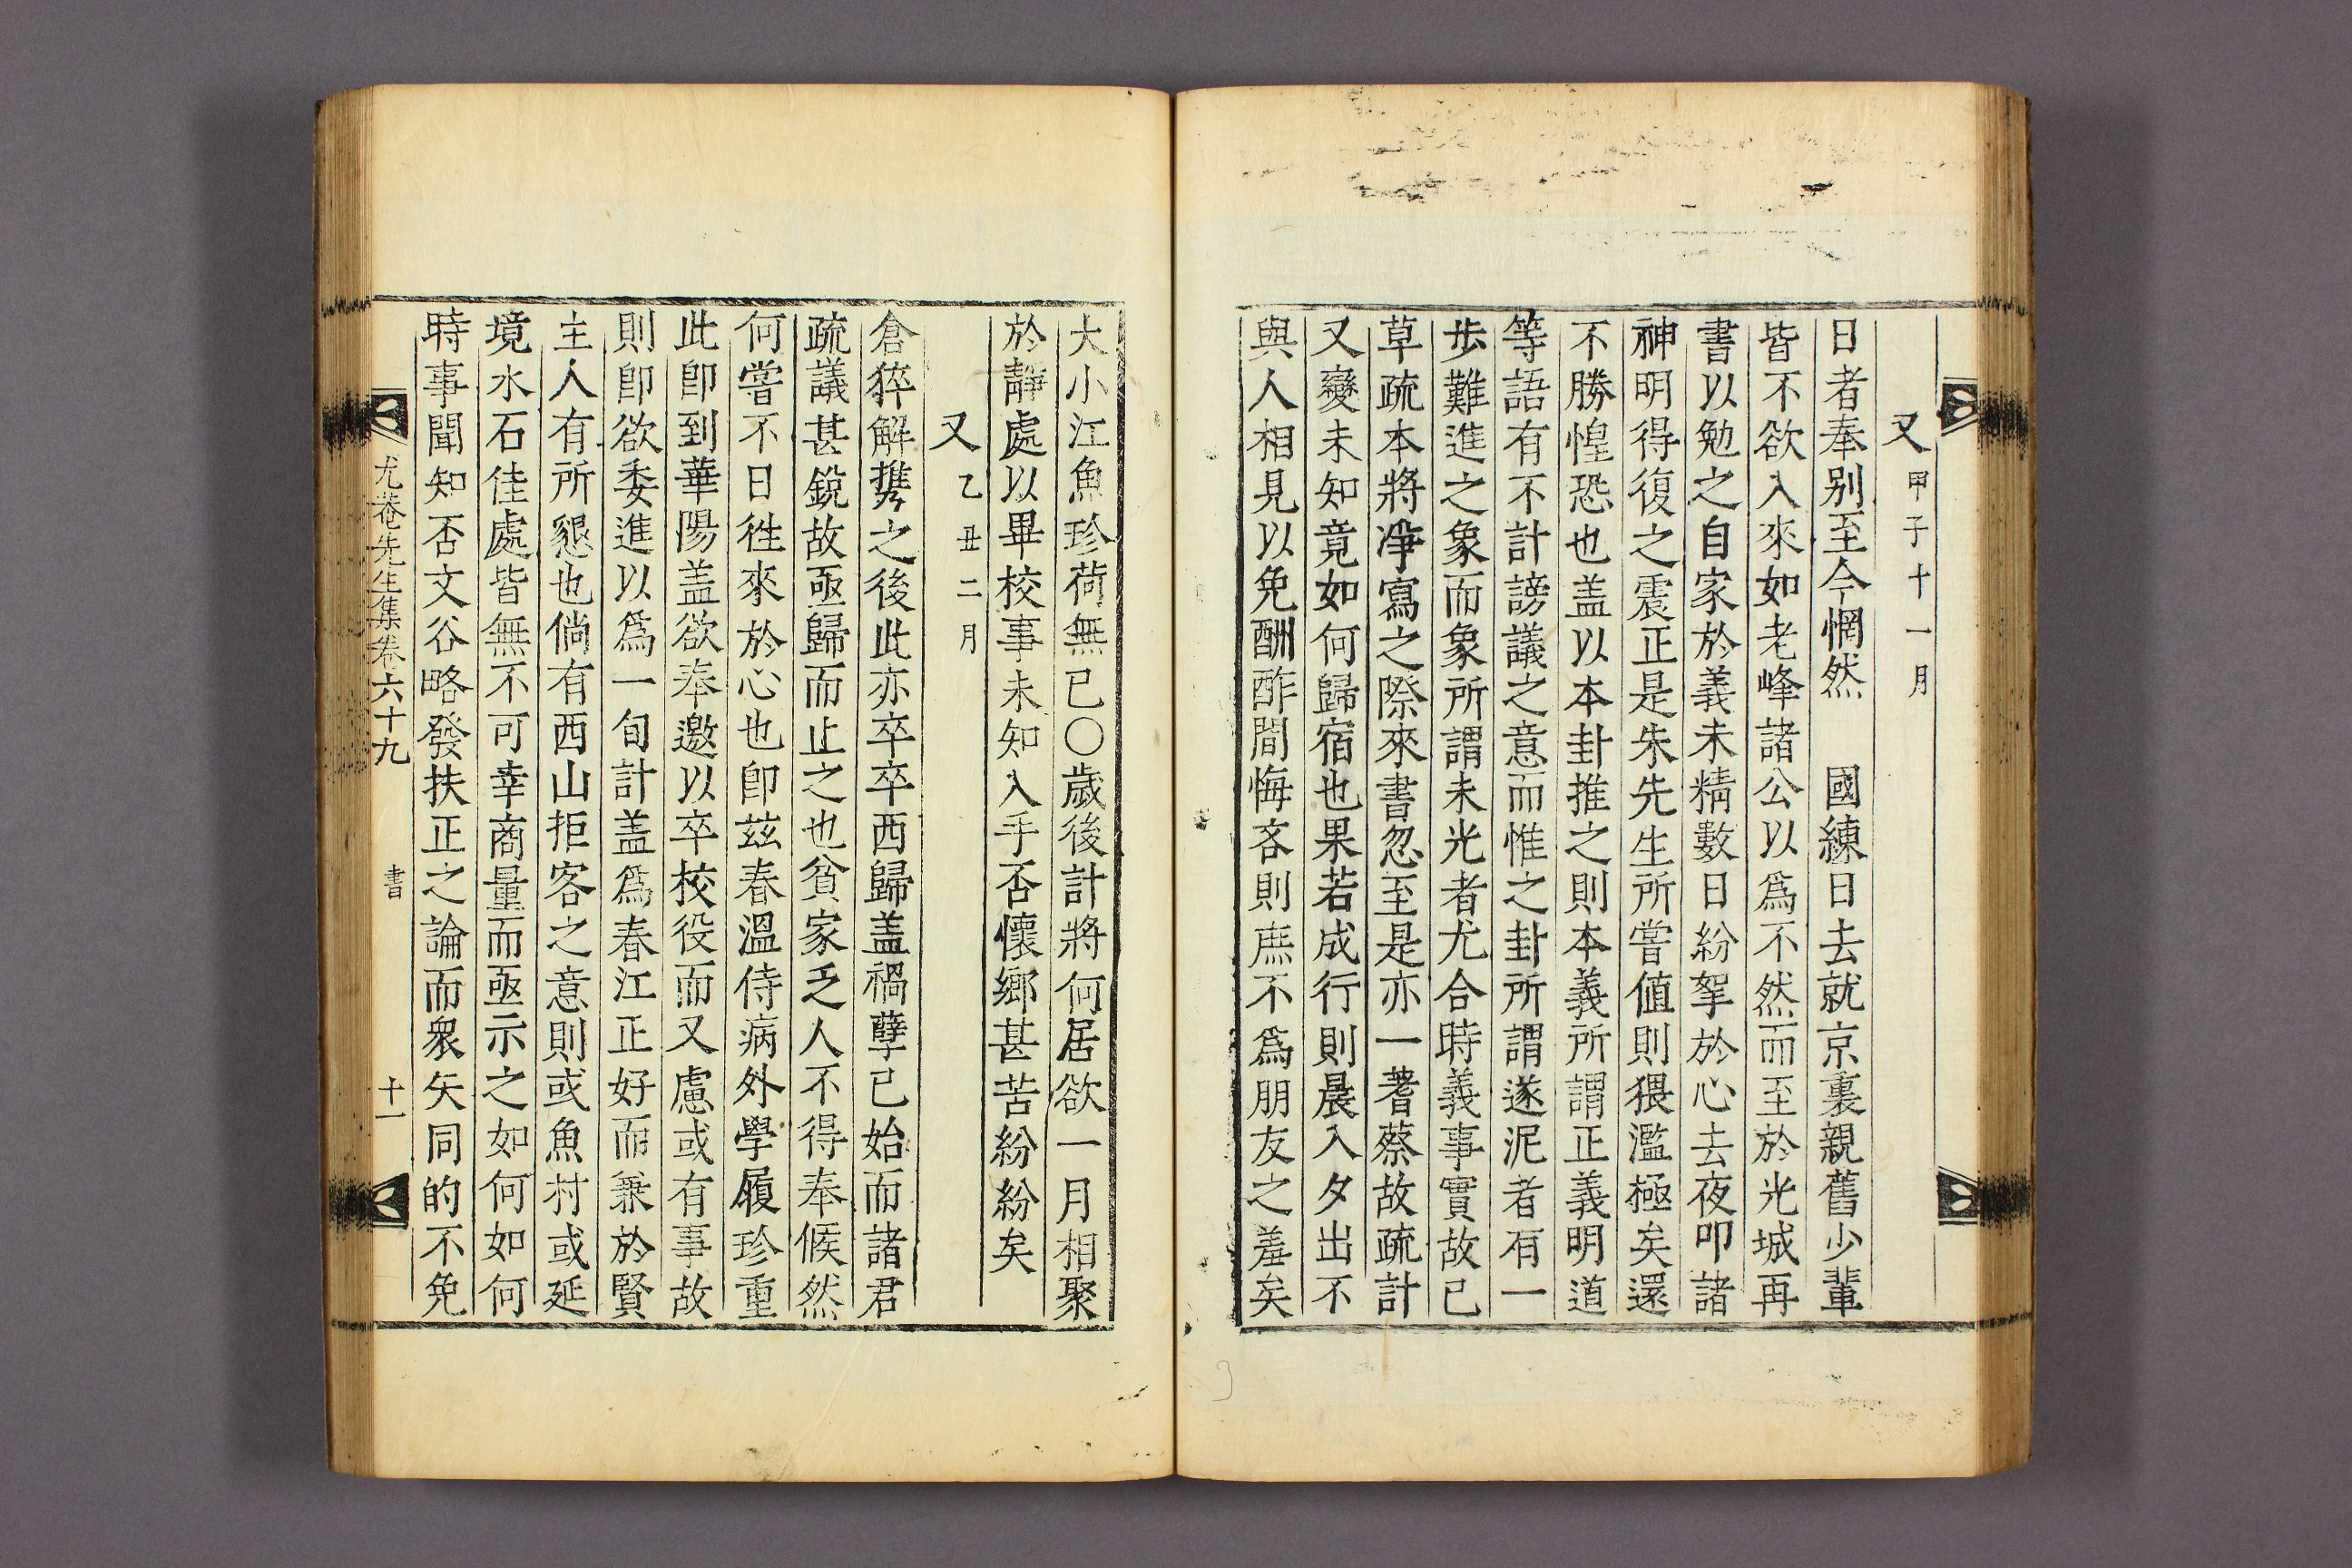 又 甲子十一月
日者奉別至今惘然　國練日去就京裏親舊少輩
皆不欲入來如老峰諸公以爲不然而至於光城再
書以勉之自家於義未精數日紛挐於心去夜叩諸
神明得復之震正是朱先生所嘗値則猥濫極矣還
不勝惶恐也盖以本卦推之則本義所謂正義明道
等語有不計謗議之意而惟之卦所謂遂泥者有一
步難進之象而象所謂未光者尤合時義事實故已
草疏本將凈寫之際來書忽至是亦一蓍蔡故疏計
又變未知竟如何歸宿也果若成行則晨入夕出不
與人相見以免酬酢間悔吝則庶不爲朋友之羞矣
大小江魚珍荷無已〇歲後計將何居欲一月相聚
於靜處以畢校事未知入手否懷鄉甚苦紛紛矣
又 乙丑二月
倉猝解携之後此亦卒卒西歸盖禍孽已始而諸君
疏議甚銳故亟歸而止之也貧家乏人不得奉候然
何嘗不日徃來於心也卽玆春溫侍病外學履珍重
此卽到華陽盖欲奉邀以卒校役而又慮或有事故
則卽欲委進以爲一旬計盖爲春江正好而兼於賢
主人有所懇也倘有西山拒客之意則或魚村或延
境水石佳處皆無不可幸商量而亟示之如何如何
時事聞知否文谷略發扶正之論而衆矢同的不免
尤菴先生集卷六十九　書　十一